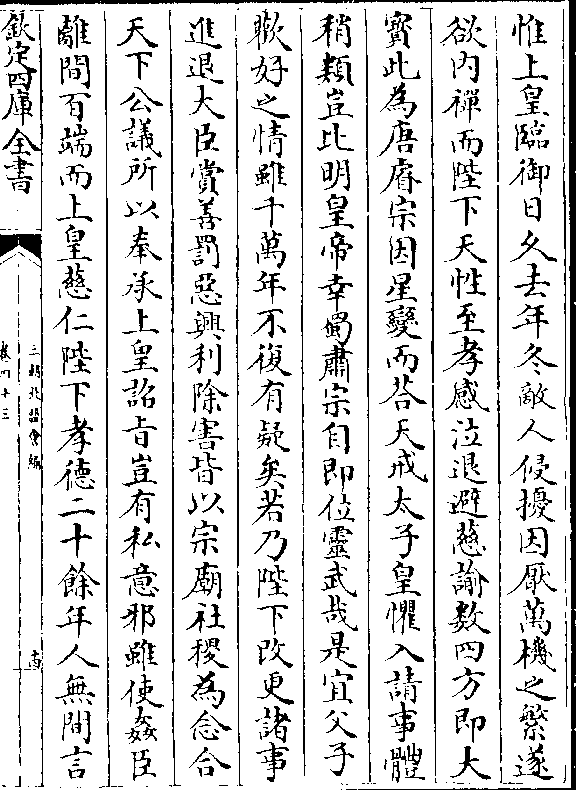 惟上皇臨御日久去年冬敵人侵擾因厭萬機之繁遂
欲内禪而陛下天性至孝感泣退避慈諭數四方即大
寳此為唐睿宗因星變而荅天戒太子皇懼入請事體
稍類豈比明皇帝幸蜀肅宗自即位靈武哉是宜父子
歡好之情雖千萬年不復有疑矣若乃陛下改更諸事
進退大臣賞善罰惡興利除害皆以宗廟社稷為念合
天下公議所以奉承上皇詔㫖豈有私意邪雖使姦臣
離間百端而上皇慈仁陛下孝德二十餘年人無間言
欽定四庫全書
三朝北盟會編
卷四十三